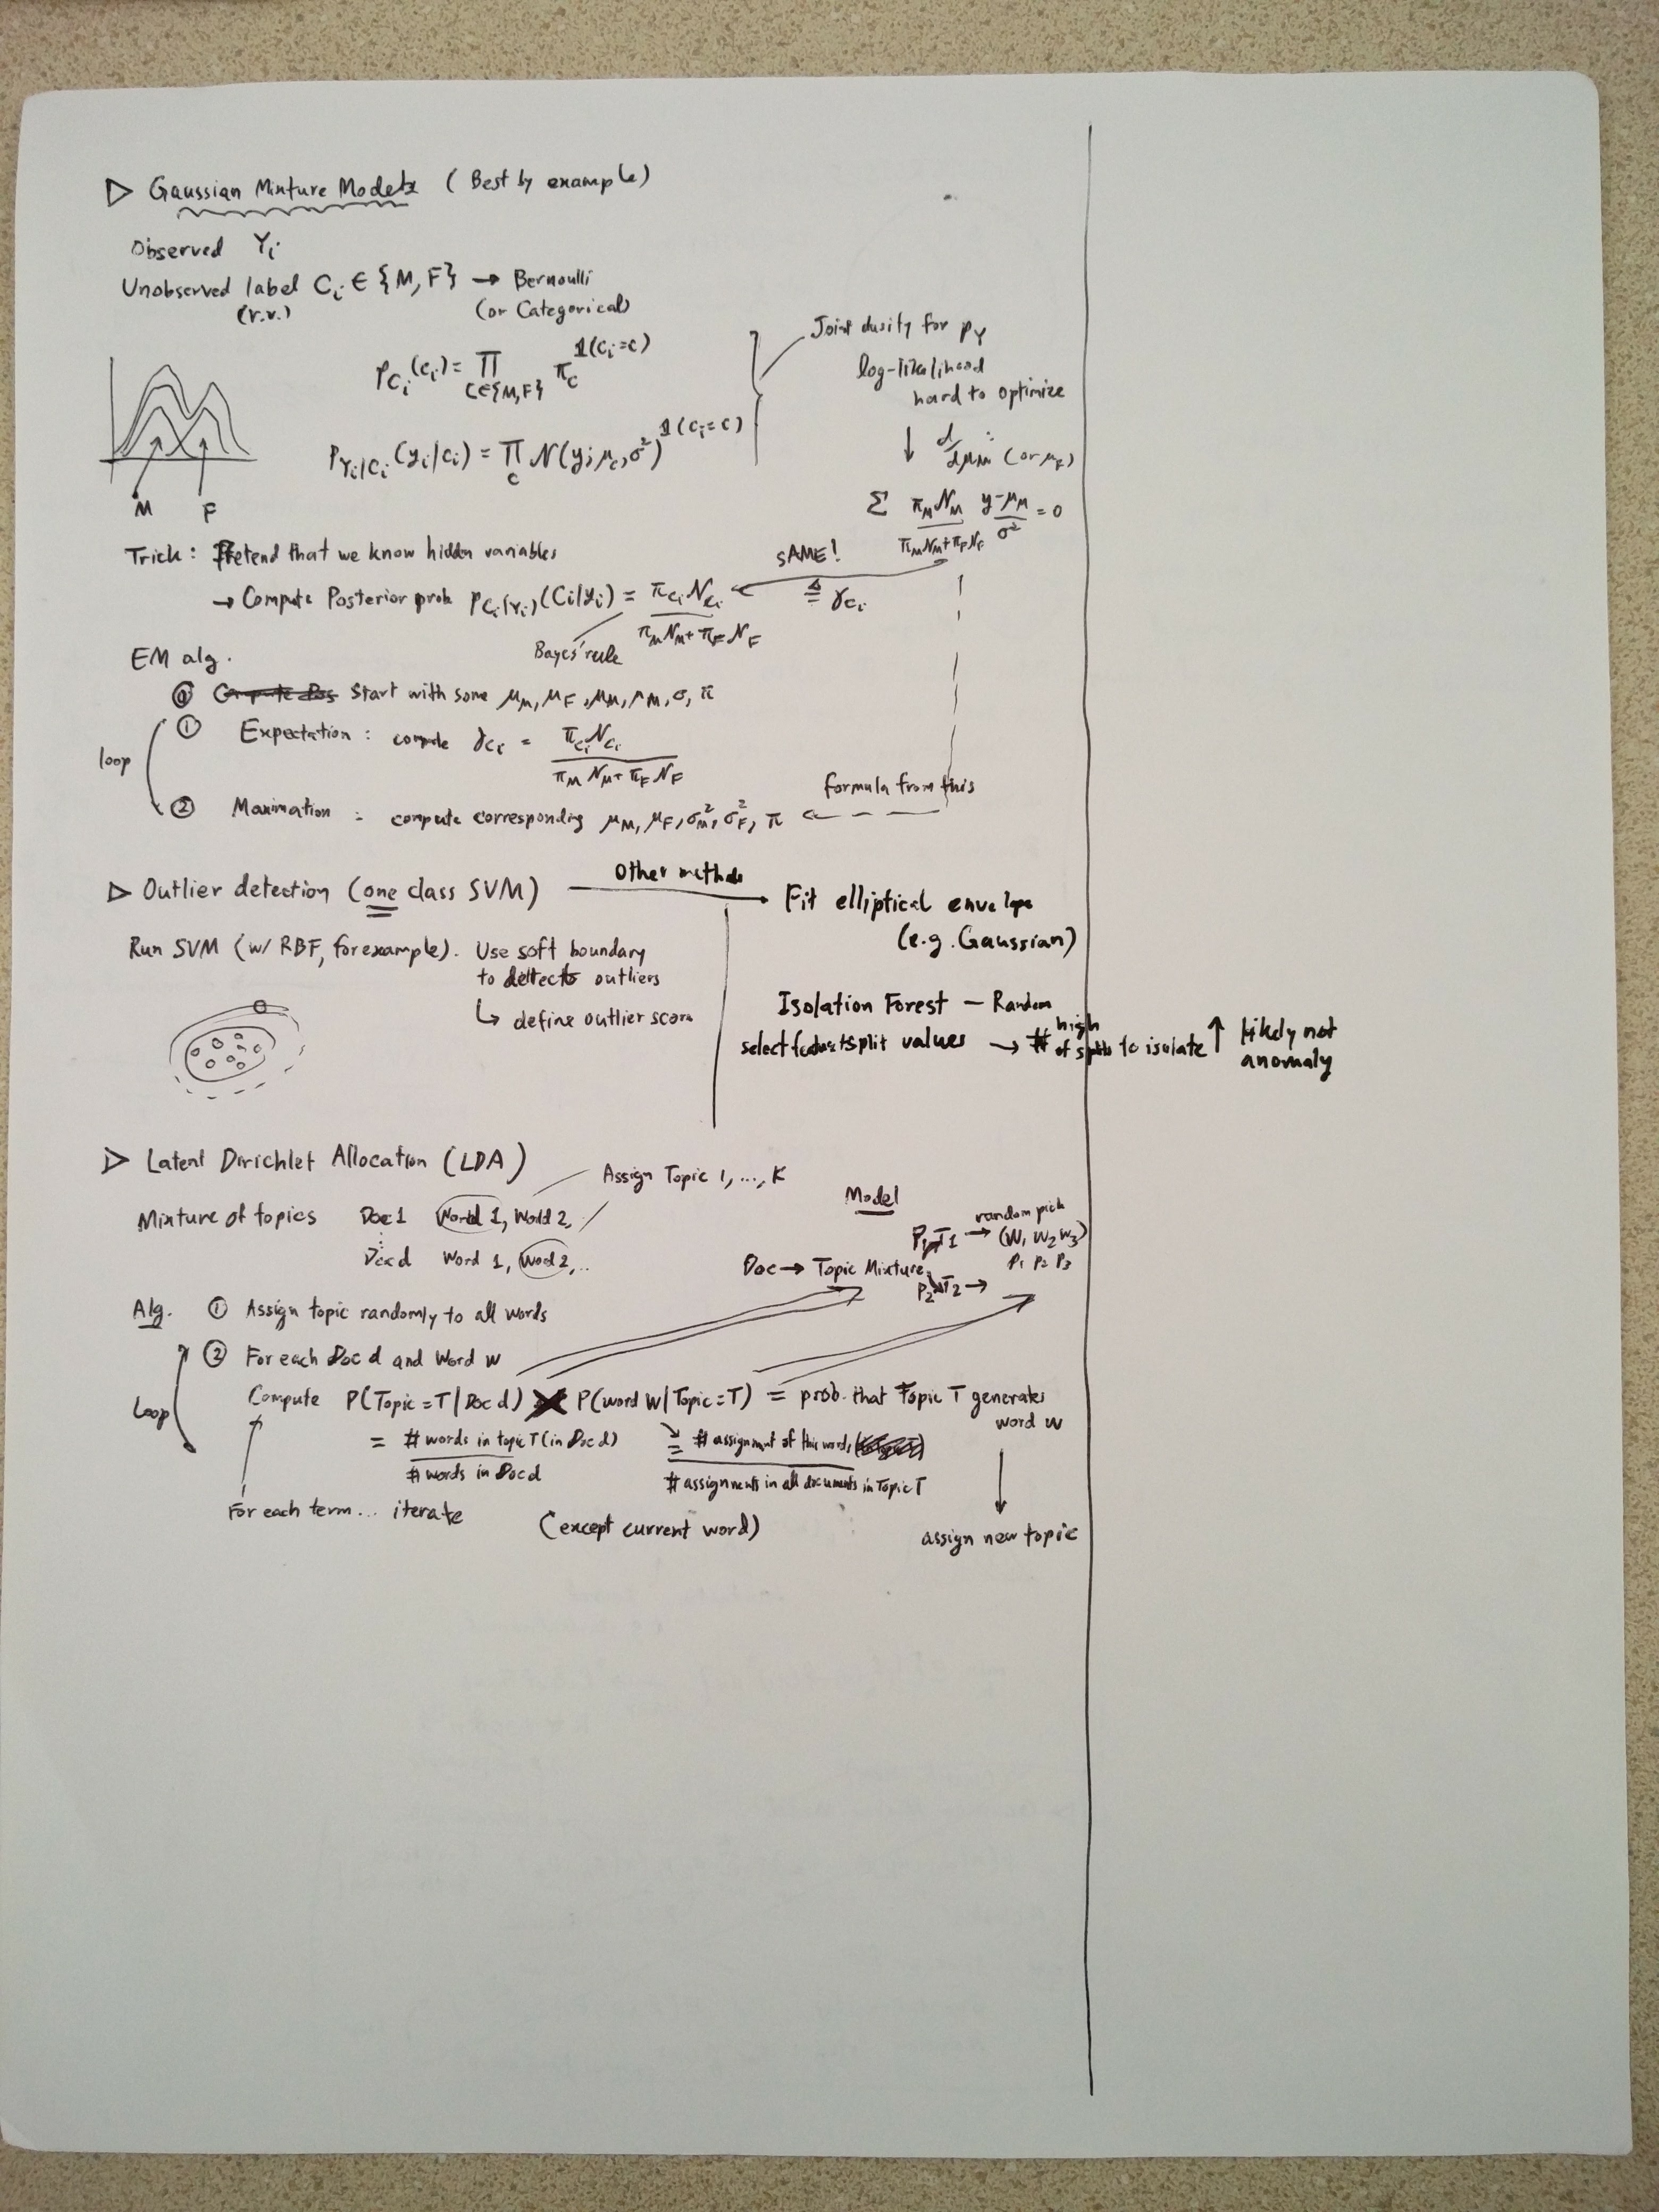 ▷ Gaussian Mixture Models (Best by example)
Observed Yᵢ
Unobserved label Cᵢ ∈ {M, F} → Bernoulli
(r.v.) (or Categorical)
p_{Cᵢ}(cᵢ) = ∏_{c∈{M,F}} π_c^{𝟙(cᵢ=c)}
p_{Yᵢ|Cᵢ}(yᵢ|cᵢ) = ∏_c N(y; μ_c, σ²)^{𝟙(cᵢ=c)}
M F
Joint dusity for p_Y
log-likelihood
hard to optimize
↓ d/dμ_M : (or μ_F)
Σ π_M N_M / (π_M N_M + π_F N_F) (y-μ_M)/σ² = 0
Trick : Pretend that we know hidden variables
SAME!
→ Compute Posterior prob p_{Cᵢ|Yᵢ}(Cᵢ|yᵢ) = π_{cᵢ} N_{cᵢ} / (π_M N_M + π_F N_F) ≜ γ_{cᵢ}
Bayes' rule
EM alg.
⓪ Start with some μ_M, μ_F, μ_M, μ_M, σ, π
① Expectation : compute γ_{cᵢ} = π_{cᵢ} N_{cᵢ} / (π_M N_M + π_F N_F)
loop
② Maximation : compute corresponding μ_M, μ_F, σ_M², σ_F², π
formula from this
▷ Outlier detection (one class SVM)
Other methods
Fit elliptical envelope
(e.g. Gaussian)
Run SVM (w/ RBF, for example). Use soft boundary
to detect outliers
↳ define outlier score
Isolation Forest – Random
select split values → # high of splits to isolate ↑ likely not
anomaly
▷ Latent Dirichlet Allocation (LDA)
Assign Topic 1, ..., K
Mixture of topics Doc 1 Word 1, Word 2,
Doc d Word 1, Word 2, ..
Model
P₁ T1 → random pick (W₁ W₂ W₃)
P₁ P₂ P₃
Doc → Topic Mixture
P₂ T2 →
Alg. ① Assign topic randomly to all words
② For each Doc d and Word w
loop
Compute P(Topic = T | Doc d) × P(word w | Topic = T) = prob. that Topic T generates
word w
= # words in topic T (in Doc d) / # words in Doc d
= # assignment of this word / # assignments in all documents in Topic T
For each term... iterate
(except current word)
assign new topic